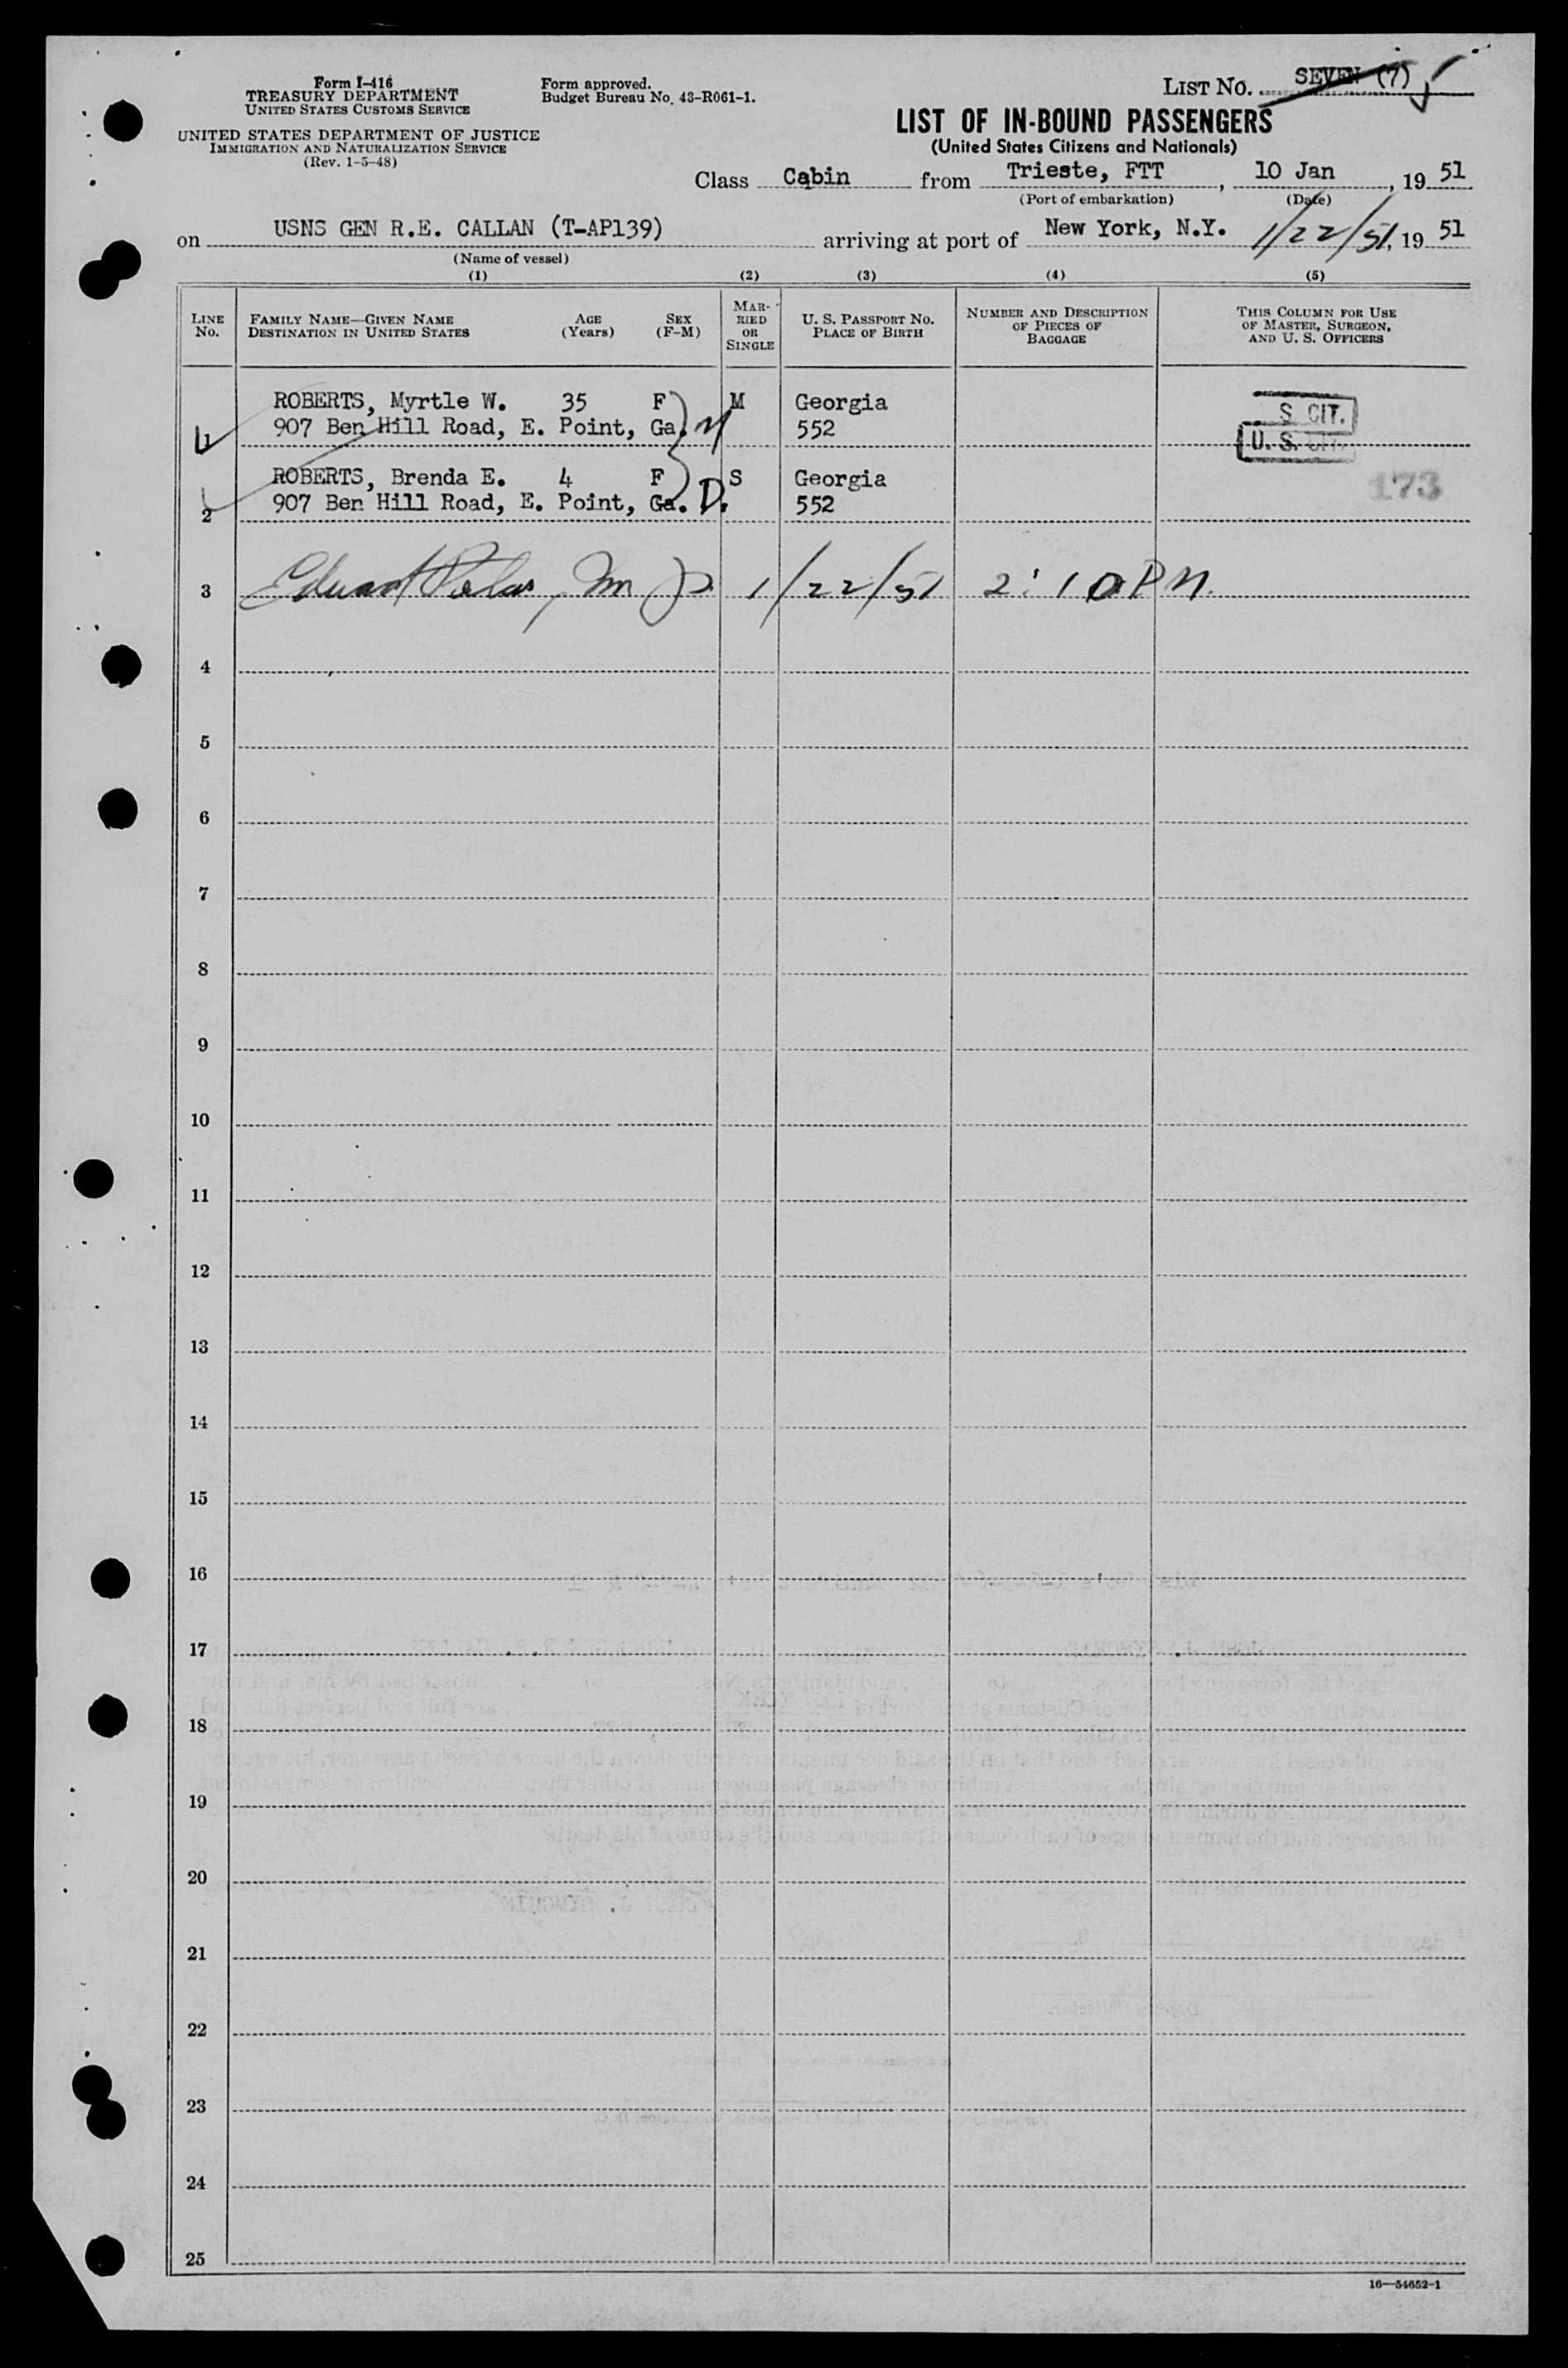 Form I-416
TREASURY DEPARTMENT
UNITED STATES CUSTOMS SERVICE
UNITED STATES DEPARTMENT OF JUSTICE
IMMIGRATION AND NATURALIZATION SERVICE
(Rev. 1-5-48)
Form approved.
Budget Bureau No. 43-R061-1.
LIST NO. SEVEN (7)
LIST OF IN-BOUND PASSENGERS
(United States Citizens and Nationals)
Class Cabin from Trieste, FTT, 10 Jan, 19 51
(Port of embarkation) (Date)
on USNS GEN R.E. CALLAN (T-AP139) arriving at port of New York, N.Y. 1/22/51, 19 51
(Name of vessel)
(1) (2) (3) (4) (5)
LINE No.
FAMILY NAME—GIVEN NAME
DESTINATION IN UNITED STATES
AGE (Years)
SEX (F-M)
MARRIED OR SINGLE
U. S. PASSPORT NO.
PLACE OF BIRTH
NUMBER AND DESCRIPTION OF PIECES OF BAGGAGE
THIS COLUMN FOR USE OF MASTER, SURGEON, AND U. S. OFFICERS
ROBERTS, Myrtle W. 35 F M Georgia
1 907 Ben Hill Road, E. Point, Ga. 552
S. CIT.
U. S.
ROBERTS, Brenda E. 4 F S Georgia
2 907 Ben Hill Road, E. Point, Ga. D. 552
173
3 Edward 1/22/51 2:10 PM.
4
5
6
7
8
9
10
11
12
13
14
15
16
17
18
19
20
21
22
23
24
25
16—54652-1